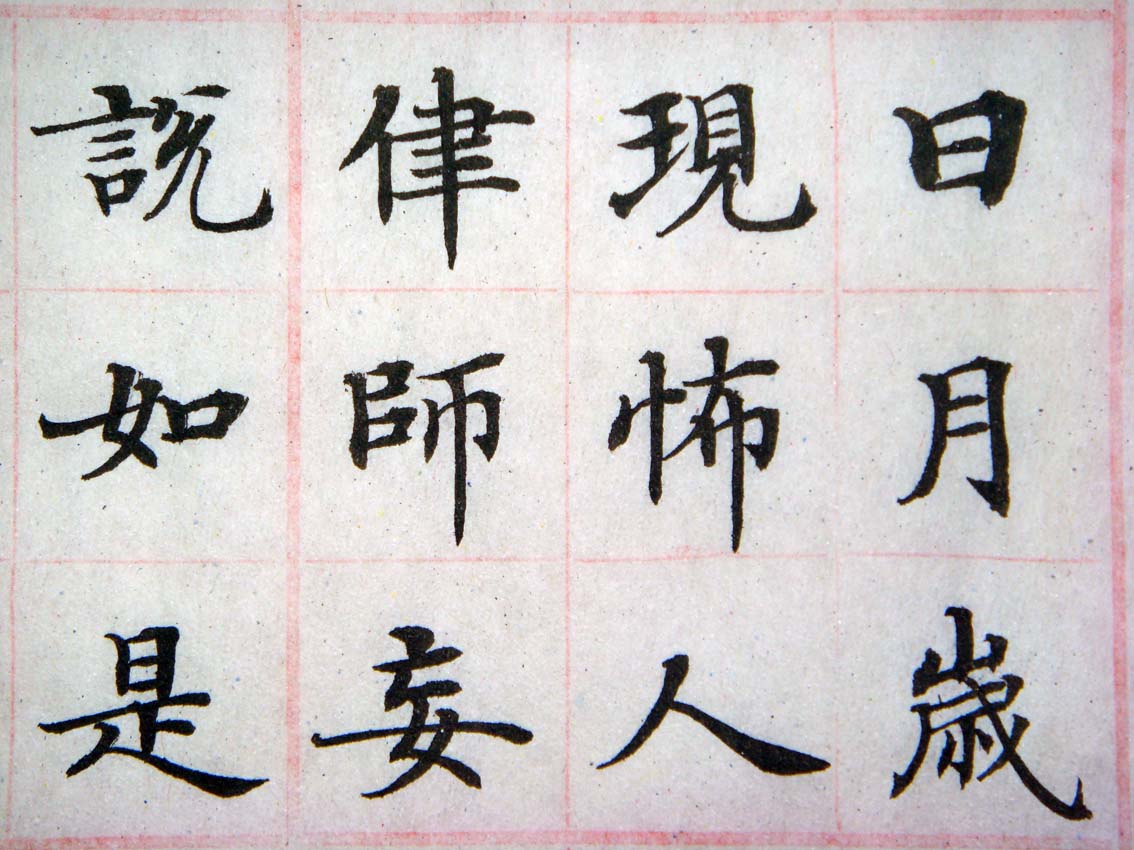 日月歲
現怖人
律師妄
說如是